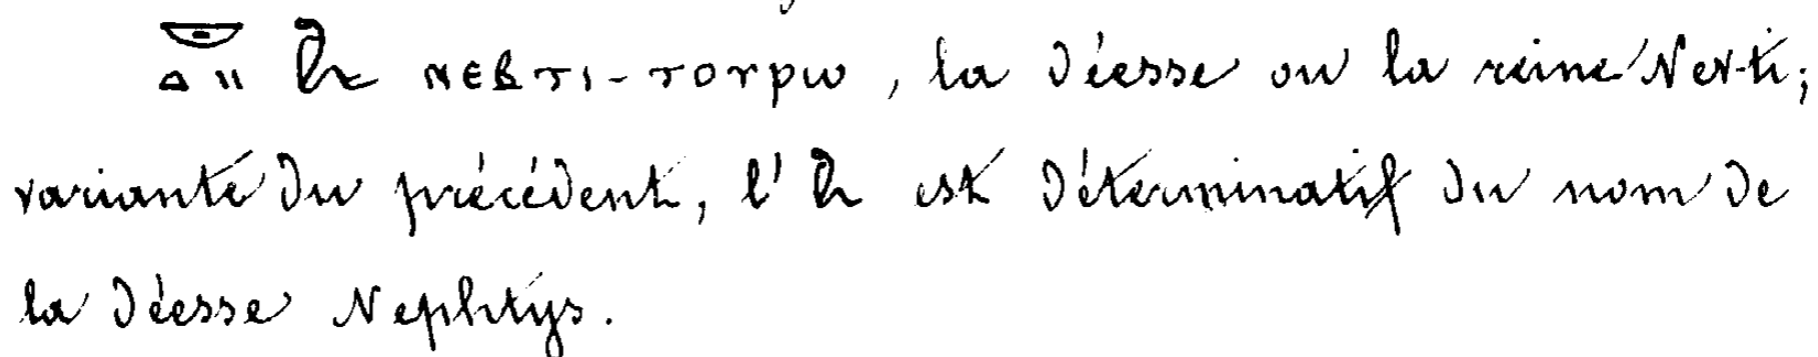 𓎟𓏏𓏭 𓆗 ⲛⲉⲃⲧⲓ-ⲧⲟⲩⲣⲱ, la déesse ou la reine Nev-ti;
variante du précédent, l'𓆗 est déterminatif du nom de
la déesse Nephtys.